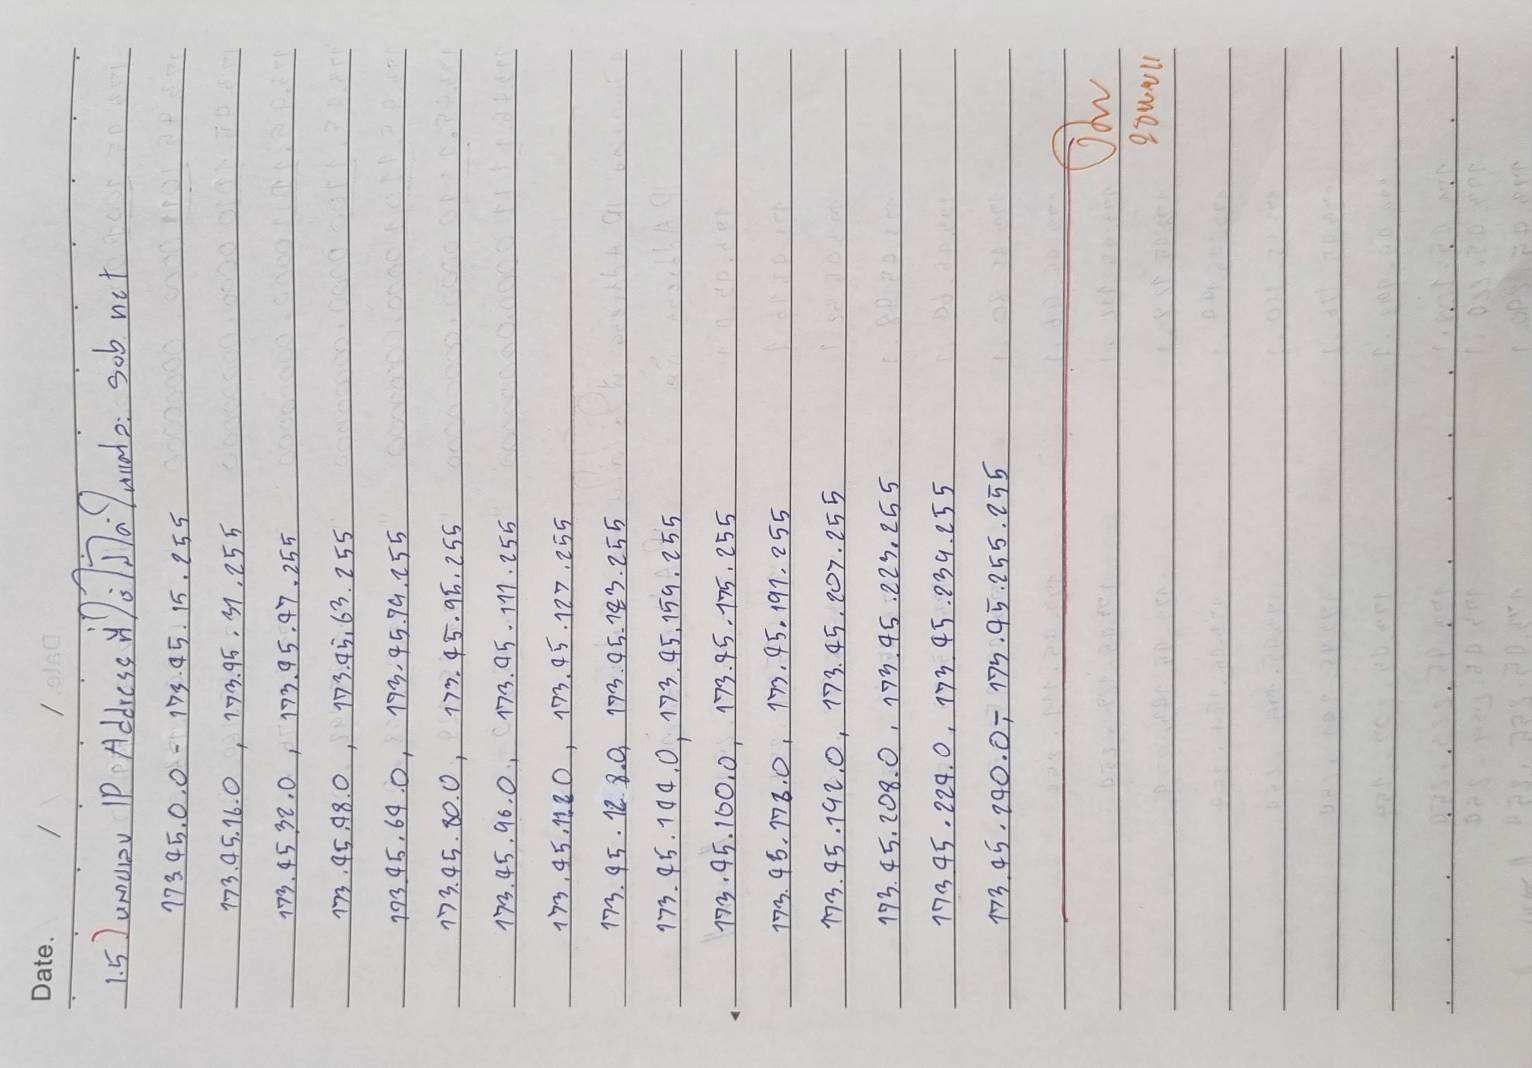 Date. / /
1.5) บทบของ IP Address ที่ใช้ไม่ได้ในแต่ละ sub net
173.45.0.0 - 173.45.15.255
173.45.16.0 , 173.45.31.255
173.45.32.0 , 173.45.47.255
173.45.48.0 , 173.45.63.255
173.45.64.0 , 173.45.79.255
173.45.80.0 , 173.45.95.255
173.45.96.0 , 173.45.111.255
173.45.112.0 , 173.45.127.255
173.45.128.0 , 173.45.143.255
173.45.144.0 , 173.45.159.255
173.45.160.0 , 173.45.175.255
173.45.176.0 , 173.45.191.255
173.45.192.0 , 173.45.207.255
173.45.208.0 , 173.45.223.255
173.45.224.0 , 173.45.239.255
173.45.240.0 - 173.45.255.255